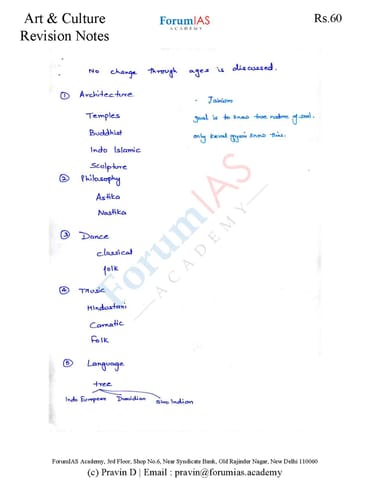 Art & Culture
Revision Notes
ForumIAS
ACADEMY
Rs.60
No change through ages is discussed.
① Architecture
Temples
Buddhist
Indo Islamic
Sculpture
- Jainism
goal is to know true nature of soul.
only keval gyani knows this.
② Philosophy
Astika
Nastika
③ Dance
classical
folk
④ Music
Hindustani
Carnatic
Folk
⑤ Language
tree
Indo European Dravidian Sino Indian
ForumIAS
ACADEMY
ForumIAS Academy, 3rd Floor, Shop No.6, Near Syndicate Bank, Old Rajinder Nagar, New Delhi 110060
(c) Pravin D | Email : pravin@forumias.academy